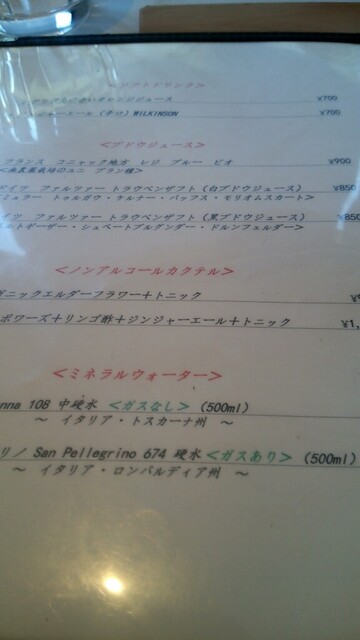 <ソフトドリンク>
オレンジジュース ¥700
ジャーエール (辛口) WILKINSON ¥700
<ブドウジュース>
フランス コニャック地方 レジ ブルー ビオ ¥900
ユニ ブラン種>
ドイツ ファルツァー トラウベンザフト (白ブドウジュース) ¥850
ミュラー トゥルガウ・ケルナー・バッフス・モリオムスカート>
イツ ファルツァー トラウベンザフト (黒ブドウジュース) ¥850
ルトギーザー・シュペートブルグンダー・ドルンフェルダー>
<ノンアルコールカクテル>
ガニックエルダーフラワー+トニック
ボワーズ+リンゴ酢+ジンジャーエール+トニック ¥1,
<ミネラルウォーター>
anna 108 中硬水 <ガスなし> (500ml)
~ イタリア・トスカーナ州 ~
リノ San Pellegrino 674 硬水 <ガスあり> (500ml)
~ イタリア・ロンバルディア州 ~